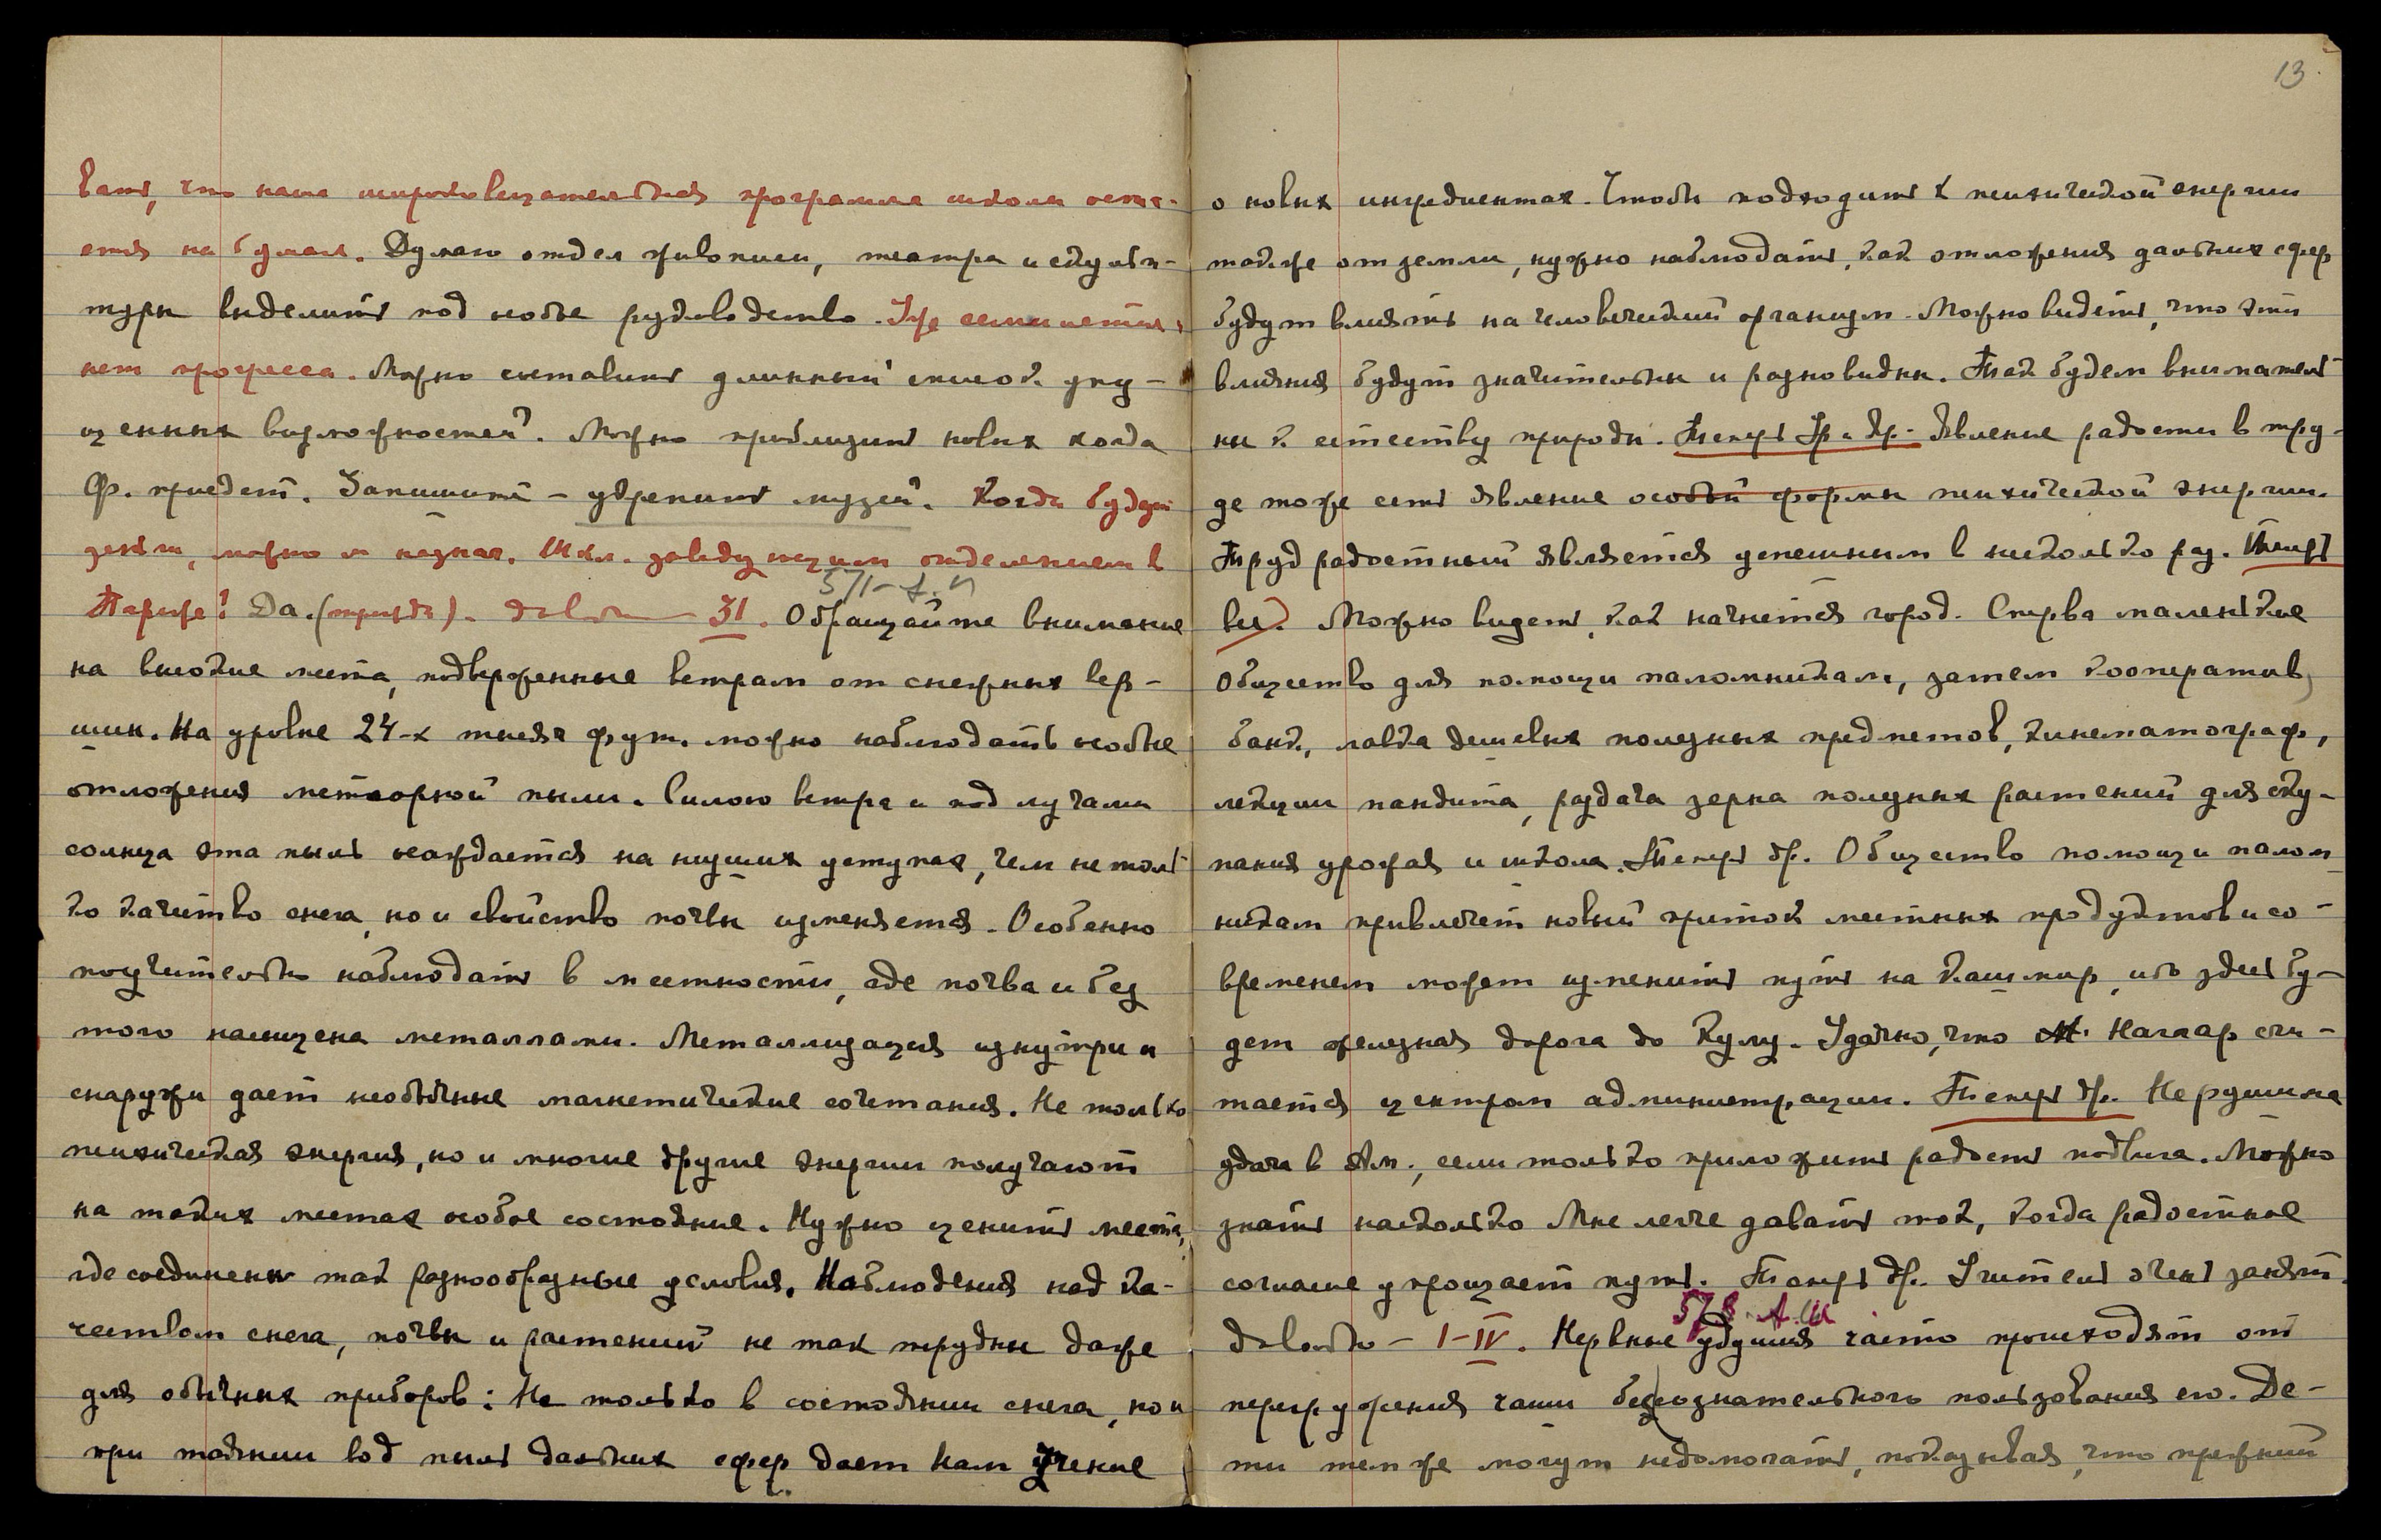 вать, что наша широковещательная программа школы оста-
ется на бумаге. Думаю отдел живописи, театра и скульп-
туры выделить под особое руководство. Уже семилетия,
нет прогресса. Можно составить длинный список упу-
щенных возможностей. Можно приблизить новых когда
Ф. приедет. Запишите – укрепить музей. Когда будут
деньги, можно ли назнач. Шкл. заведующим отделением в
Париже? Да. (правда). довольно 31. Обращайте внимание
571-А.Й
на высокие места, подверженные ветрам от снежных вер-
шин. На уровне 24-х тысяч фут. можно наблюдать особые
отложения метеорной пыли. Силою ветра и под лучами
солнца эта пыль осаждается на низших уступах, чем не толь-
ко качество снега, но и свойство почвы изменяется. Особенно
поучительно наблюдать в местности, где почва и без
того насыщена металлами. Металлизация изнутри и
снаружи дает необычные магнетические сочетания. Не только
психическая энергия, но и многие другие энергии получают
на таких местах особое состояние. Нужно ценить места,
где соединены так разнообразные условия. Наблюдения над ка-
чеством снега, почвы и растений не так трудны даже
для обычных приборов: Не только в состоянии снега, но и
при таянии вод пыль дальних сфер дает нам учение
13.
о новых ингредиентах. Чтобы подходить к психической энергии
также от земли, нужно наблюдать, как отложения дальних сфер
будут влиять на человеческий организм. Можно видеть, что эти
влияния будут значительны и разновидны. Так будем вниматель-
ны к естеству природы. Теперь др. Явление радости в тру-
де тоже есть явление особой формы психической энергии.
Труд радостный является успешным в несколько раз. Теперь
все. Можно видеть, как начнется город. Сперва маленькие
Общество для помощи паломникам, затем кооператив,
банк, лавка дешевых полезных предметов, кинематограф,
лекции пандита, раздача зерна полезных растений для ску-
пания урожая и школа. Теперь др. Общество помощи палом-
никам привлечет новый приток местных продуктов и со
временем может изменить путь на Кашмир, ибо здесь бу-
дет железная дорога до Кулу. Удачно, что Наггар счи-
тается центром администрации. Теперь др. Нерушима
удача в Ам., если только приложить радость подвига. Можно
знать насколько Мне легче давать ток, когда радостное
согласие упрощает путь. Теперь др. Учитель очень занят.
572 А.Й
довольно – 1-IV. Нервные удушия часто происходят от
перегружения чаши без сознательного пользования его. Де-
ти тем же могут недомогать, показывая, что прежний